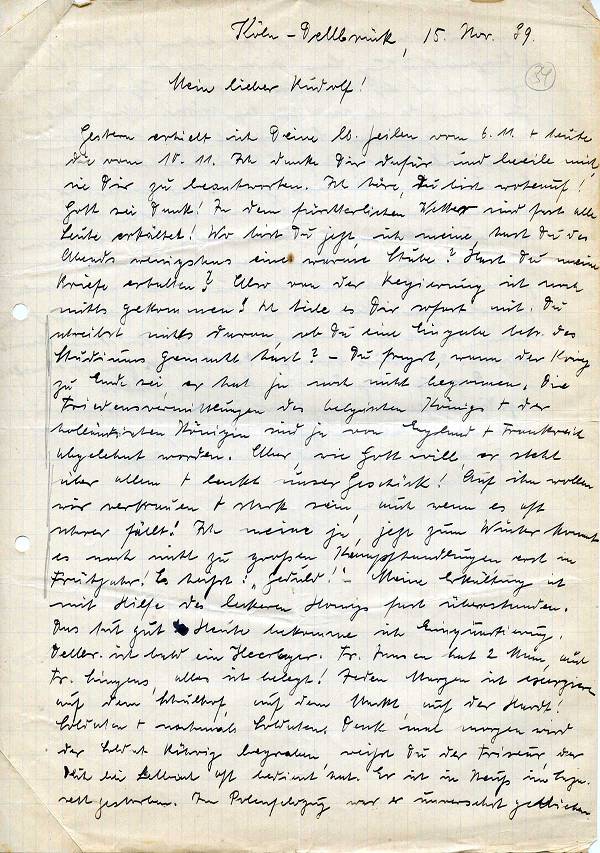 Köln-Dellbrück, 15. Nov. 39.
34
Mein lieber Rudolf!
Gestern erhielt ich Deine lb. Zeilen vom 6. 11. + heute
die vom 10. 11. Ich danke Dir dafür und beeile mich,
sie Dir zu beantworten. Ich höre, Du bist wohlauf!
Gott sei Dank! In dem fürchterlichen Wetter sind fast alle
Leute erkältet! Wo bist Du jetzt, ich meine, hast Du des
Abends wenigstens eine warme Stube? Hast Du meine
Briefe erhalten? Also von der Regierung ist noch
nichts gekommen! Ich teile es Dir sofort mit. Du
schreibst nichts davon, ob Du eine Eingabe betr. des
Studiums gemacht hast? – Du fragst, wann der Krieg
zu Ende sei, er hat ja noch nicht begonnen. Die
Friedensvermittlungen des belgischen Königs + der
holländischen Königin sind ja von England + Frankreich
abgelehnt worden. Aber, wie Gott will, er steht
über allem + lenkt unser Geschick! Auf ihn wollen
wir vertrauen + stark sein, auch wenn es oft
schwer fällt! Ich meine ja, jetzt zum Winter kommt
es noch nicht zu großen Kampfhandlungen erst im
Frühjahr! Es heißt: „Geduld!" – Meine Erkältung ist
mit Hilfe des leckeren Honigs fast überstanden.
Das tut gut. Heute bekomme ich Einquartierung.
Dellbr. ist bald ein Heerlager. Fr. Jansen hat 2 Mann, auch
Fr. Lingens, alles ist belegt! Jeden Morgen ist exerzieren
auf dem Schulhof, auf dem Markt, auf der Hardt!
Soldaten + nochmals Soldaten. Denk' mal morgen wird
der Soldat begraben, weißt Du der Friseur, der
Dich bei oft bedient hat. Er ist in Neuß im Laza-
rett gestorben. Im Polenfeldzug war er unversehrt geblieben